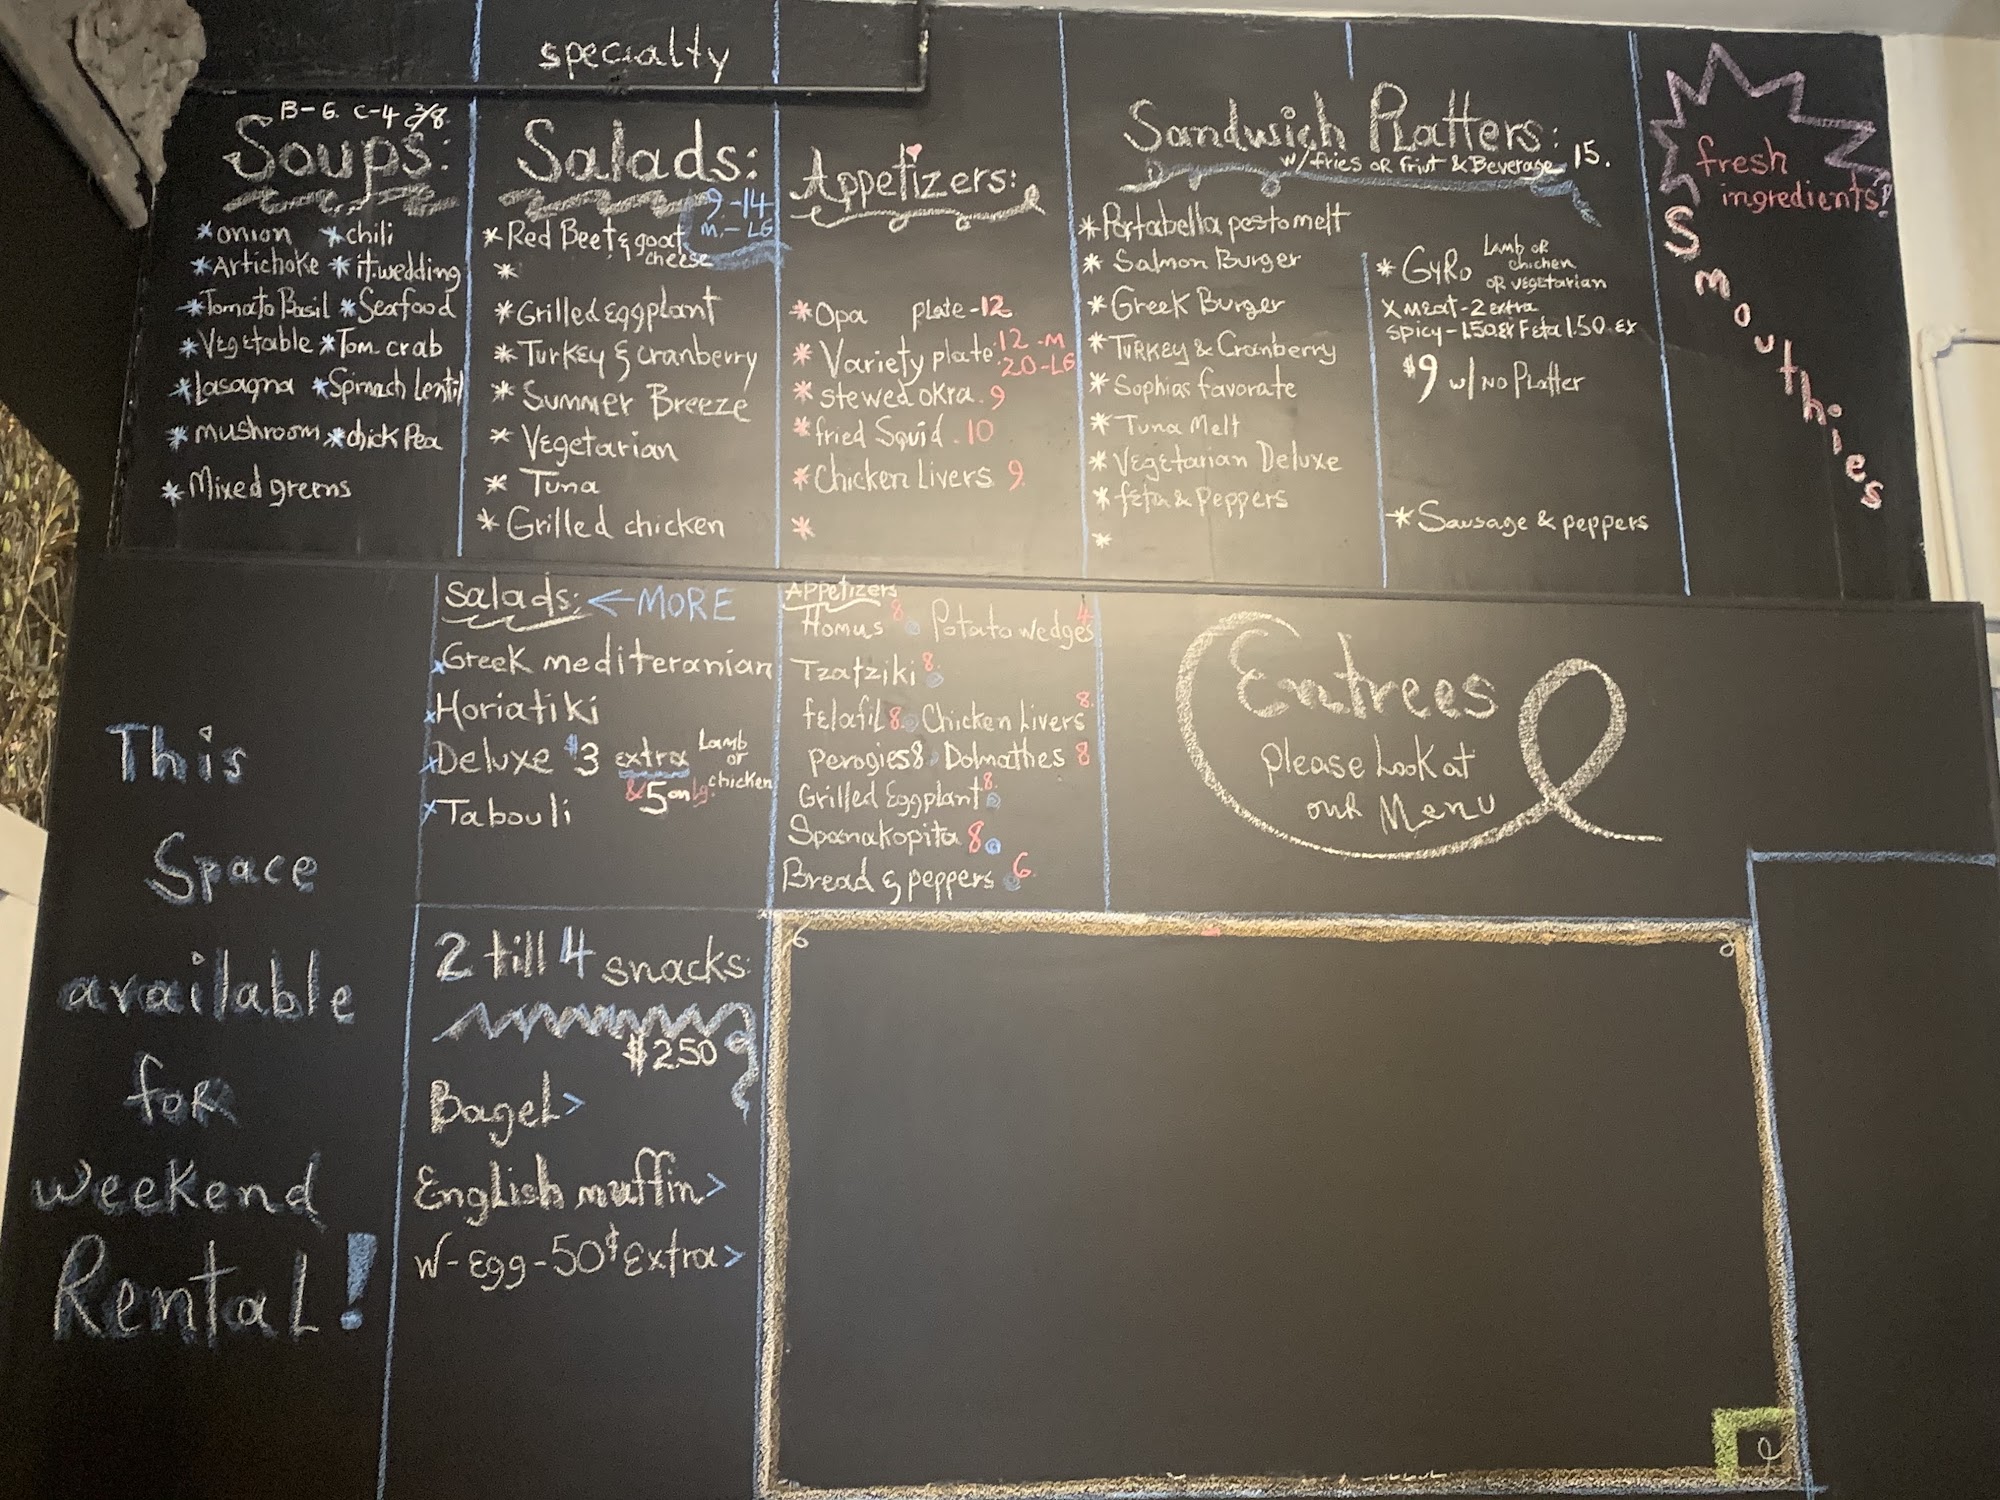 specialty
B-6. C-4 3/8.
Soups:
*onion *chili
*Artichoke *it.wedding
*Tomato Basil *Seafood
*Vegetable *Tom. crab
*Lasagna *Spinach Lentil
*mushroom *chick Pea
*Mixed greens
Salads:
9.-14
m.-LG
*Red Beet & goat
cheese
*
*Grilled Eggplant
*Turkey & cranberry
*Summer Breeze
*Vegetarian
*Tuna
*Grilled chicken
Appetizers:
*Opa plate-12
*Variety plate 12.-M
20-LG
*stewed okra. 9
*fried Squid. 10
*Chicken Livers 9.
*
Sandwich Platters:
w/fries or Friut & Beverage 15.
*Portabella pesto melt
*Salmon Burger
*Greek Burger
*Turkey & Cranberry
*Sophias favorate
*Tuna Melt
*Vegetarian Deluxe
*feta & peppers
*
*Gyro Lamb or
chichen
or vegetarian
X meat-2 extra
spicy-1.50.ex Feta 1.50.ex
$9 w/ No Platter
*Sausage & peppers
fresh
ingredients!
Smouthies
Salads: ←MORE
xGreek mediteranian
xHoriatiki
xDeluxe $3 extra Lamb
or
chicken
& 5 on lg.
xTabouli
Appetizers
Homus 8 Potato wedges 4
Tzatziki 8.
felafil 8. Chicken Livers 8.
perogies 8 Dolmathes 8
Grilled Eggplant 8.
Spanakopita 8
Bread & peppers 6.
Entrees
please Look at
our Menu
This
Space
available
for
weekend
Rental!
2 till 4 snacks:
$2.50
Bagel>
English muffin>
W-Egg-50¢ Extra>